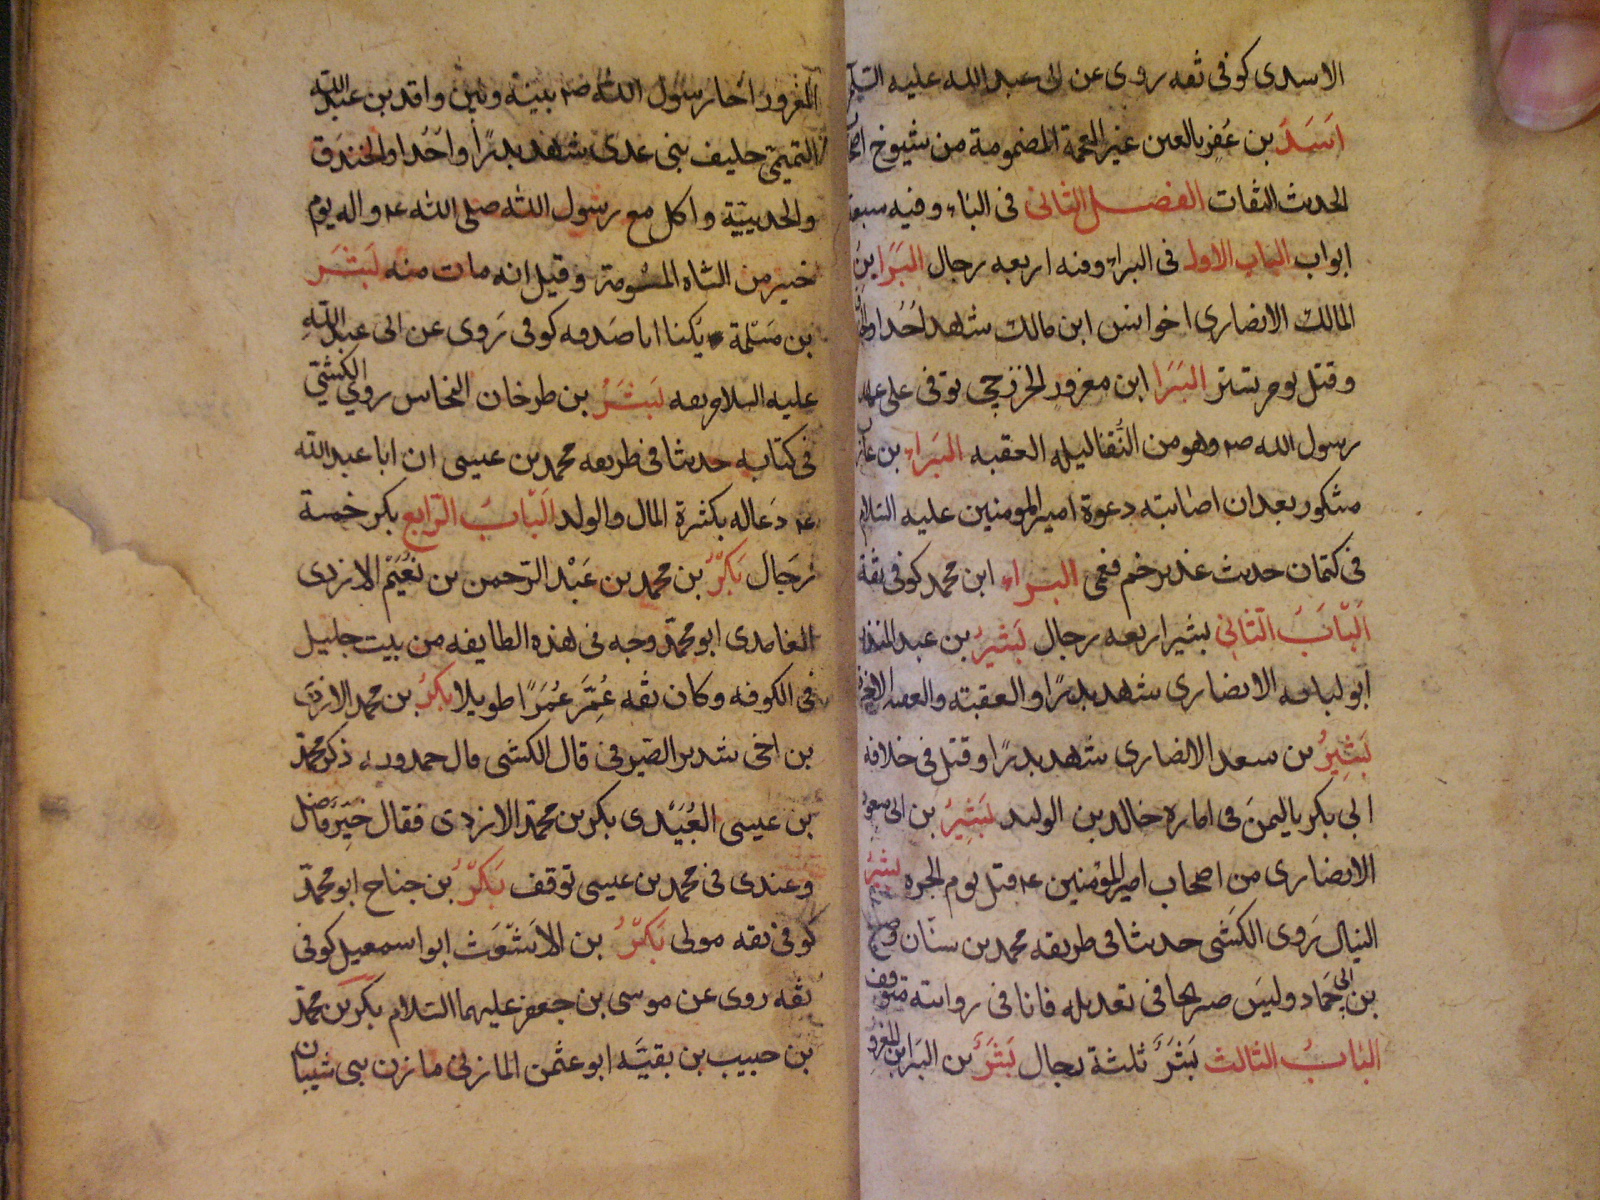 الاسدى كوفى ثقه روى عن ابى عبد الله عليه السلم
اسد بن عفر بالعين غير المعجمة المضمومة من شيوخ اصحاب
الحديث الثقات الفصل الثانى فى الباء وفيه سبعة
ابواب الباب الاول فى البراء وفيه اربعه رجال البرا ابن
المالك الانصارى اخو انس ابن مالك شهد احدا والخندق
وقتل يوم تستر البرا ابن معرور الخزرجى توفى على عهد
رسول الله صم وهو من النقبا ليله العقبه البراء بن عازب
مشكور بعد ان اصابته دعوة امير المومنين عليه السلام
فى كتمان حديث غدير خم فعمى البراء ابن محمد كوفى ثقة
الباب الثانى بشير اربعه رجال بشير بن عبد المنذر
ابو لبابه الانصارى شهد بدرا والعقبة والعقبه الاخيرة
بشير بن سعد الانصارى شهد بدرا وقتل فى خلافه
ابى بكر باليمن فى اماره خالد بن الوليد بشير بن ابى مسعود
الانصارى من اصحاب امير المؤمنين ع قتل يوم الحره بشير
النبال روى الكشى حديثا فى طريقه محمد بن سنان وصالح
بن ابى حماد وليس صريحا فى تعديله فانا فى روايته متوقف
الباب الثالث بشر ثلثة رجال بشر بن البرا بن المعرور
المغرور اخا رسول الله صم بينه وبين واقد بن عبد الله
التميمى حليف بنى عدى شهد بدرا واحدا والخندق
والحديبية واكل مع رسول الله صلى الله ع واله يوم
خيبر من الشاه المسمومة وقيل انه مات منه بشر
بن مسلمة يكنا ابا صدقه كوفى روى عن ابى عبد الله
عليه السلام ثقه بشر بن طرخان النخاس روى الكشى
فى كتابه حديثا فى طريقه محمد بن عيسى ان ابا عبد الله
ع دعا له بكثرة المال والولد الباب الرابع بكر خمسة
رجال بكر بن محمد بن عبد الرحمن بن نعيم الازدى
الغامدى ابو محمد وجه فى هذه الطايفه من بيت جليل
فى الكوفه وكان ثقه عمر عمرا طويلا بكر بن محمد الازدى
بن اخى سدير الصيرفى قال الكشى قال حمدويه ذكر محمد
بن عيسى العبيدى بكر بن محمد الازدى فقال خير فاضل
وعندى فى محمد بن عيسى توقف بكر بن جناح ابو محمد
كوفى ثقه مولى بكر بن الاشعث ابو اسمعيل كوفى
ثقه روى عن موسى بن جعفر عليهما السلام بكر بن محمد
بن حبيب بن بقية ابو عثمن المازنى مازن بنى شيبان